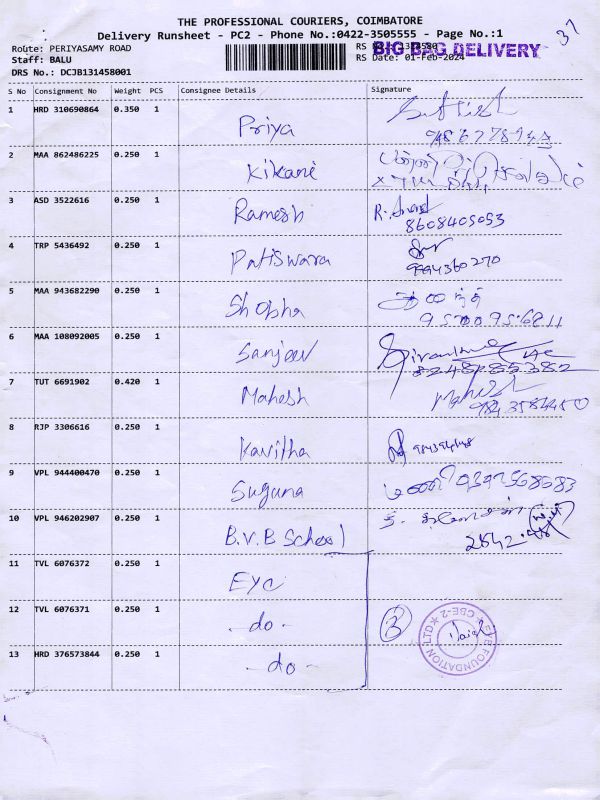 THE PROFESSIONAL COURIERS, COIMBATORE
Delivery Runsheet - PC2 - Phone No.:0422-3505555 - Page No.:1
37
Route: PERIYASAMY ROAD
RS
BIG BAG DELIVERY
Staff: BALU
RS Date: 01-Feb-2024
DRS No.: DCJB131458001
S No Consignment No Weight PCS Consignee Details Signature
1 HRD 310690864 0.350 1 Priya
2 MAA 862486225 0.250 1 Kikani
3 ASD 3522616 0.250 1 Ramesh R. Anand
8608405053
4 TRP 5436492 0.250 1 Patiswara
9994360270
5 MAA 943682290 0.250 1 Shobha
6 MAA 108092005 0.250 1 Sanjeev
8248785382
7 TUT 6691902 0.420 1 Mahesh Mahesh
9843584450
8 RJP 3306616 0.250 1 Kavitha
9 VPL 944400470 0.250 1 Suguna மணி
10 VPL 946202907 0.250 1 B.V.B School
11 TVL 6076372 0.250 1 EYE
12 TVL 6076371 0.250 1 - do - 3
EYE FOUNDATION LTD ★ CBE-2 ★
13 HRD 376573844 0.250 1 - do -